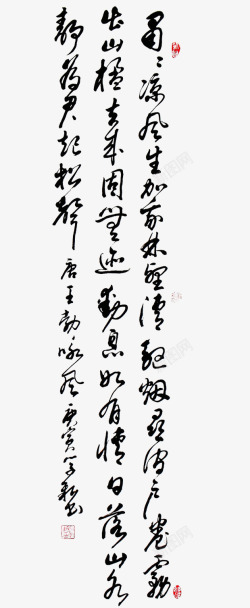 肅々涼風生加我林壑清驅烟尋澗户卷霧
出山楹去來固無迹動息如有情日落山水
靜為君起松聲 唐王勃咏風 庚寅 書